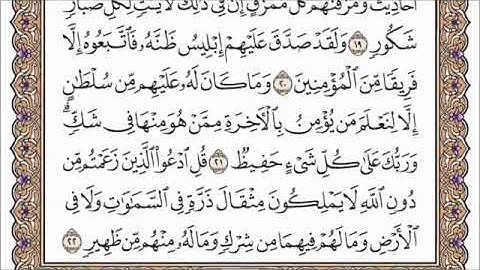 أَحَادِيثَ وَمَزَّقْنَٰهُمْ كُلَّ مُمَزَّقٍ إِنَّ فِى ذَٰلِكَ لَءَايَٰتٍ لِّكُلِّ صَبَّارٍ
شَكُورٍ ١٩ وَلَقَدْ صَدَّقَ عَلَيْهِمْ إِبْلِيسُ ظَنَّهُۥ فَٱتَّبَعُوهُ إِلَّا
فَرِيقًا مِّنَ ٱلْمُؤْمِنِينَ ٢٠ وَمَا كَانَ لَهُۥ عَلَيْهِم مِّن سُلْطَٰنٍ
إِلَّا لِنَعْلَمَ مَن يُؤْمِنُ بِٱلْءَاخِرَةِ مِمَّنْ هُوَ مِنْهَا فِى شَكٍّۗ
وَرَبُّكَ عَلَىٰ كُلِّ شَىْءٍ حَفِيظٌ ٢١ قُلِ ٱدْعُوا۟ ٱلَّذِينَ زَعَمْتُم مِّن
دُونِ ٱللَّهِ لَا يَمْلِكُونَ مِثْقَالَ ذَرَّةٍ فِى ٱلسَّمَٰوَٰتِ وَلَا فِى
ٱلْأَرْضِ وَمَا لَهُمْ فِيهِمَا مِن شِرْكٍ وَمَا لَهُۥ مِنْهُم مِّن ظَهِيرٍ ٢٢